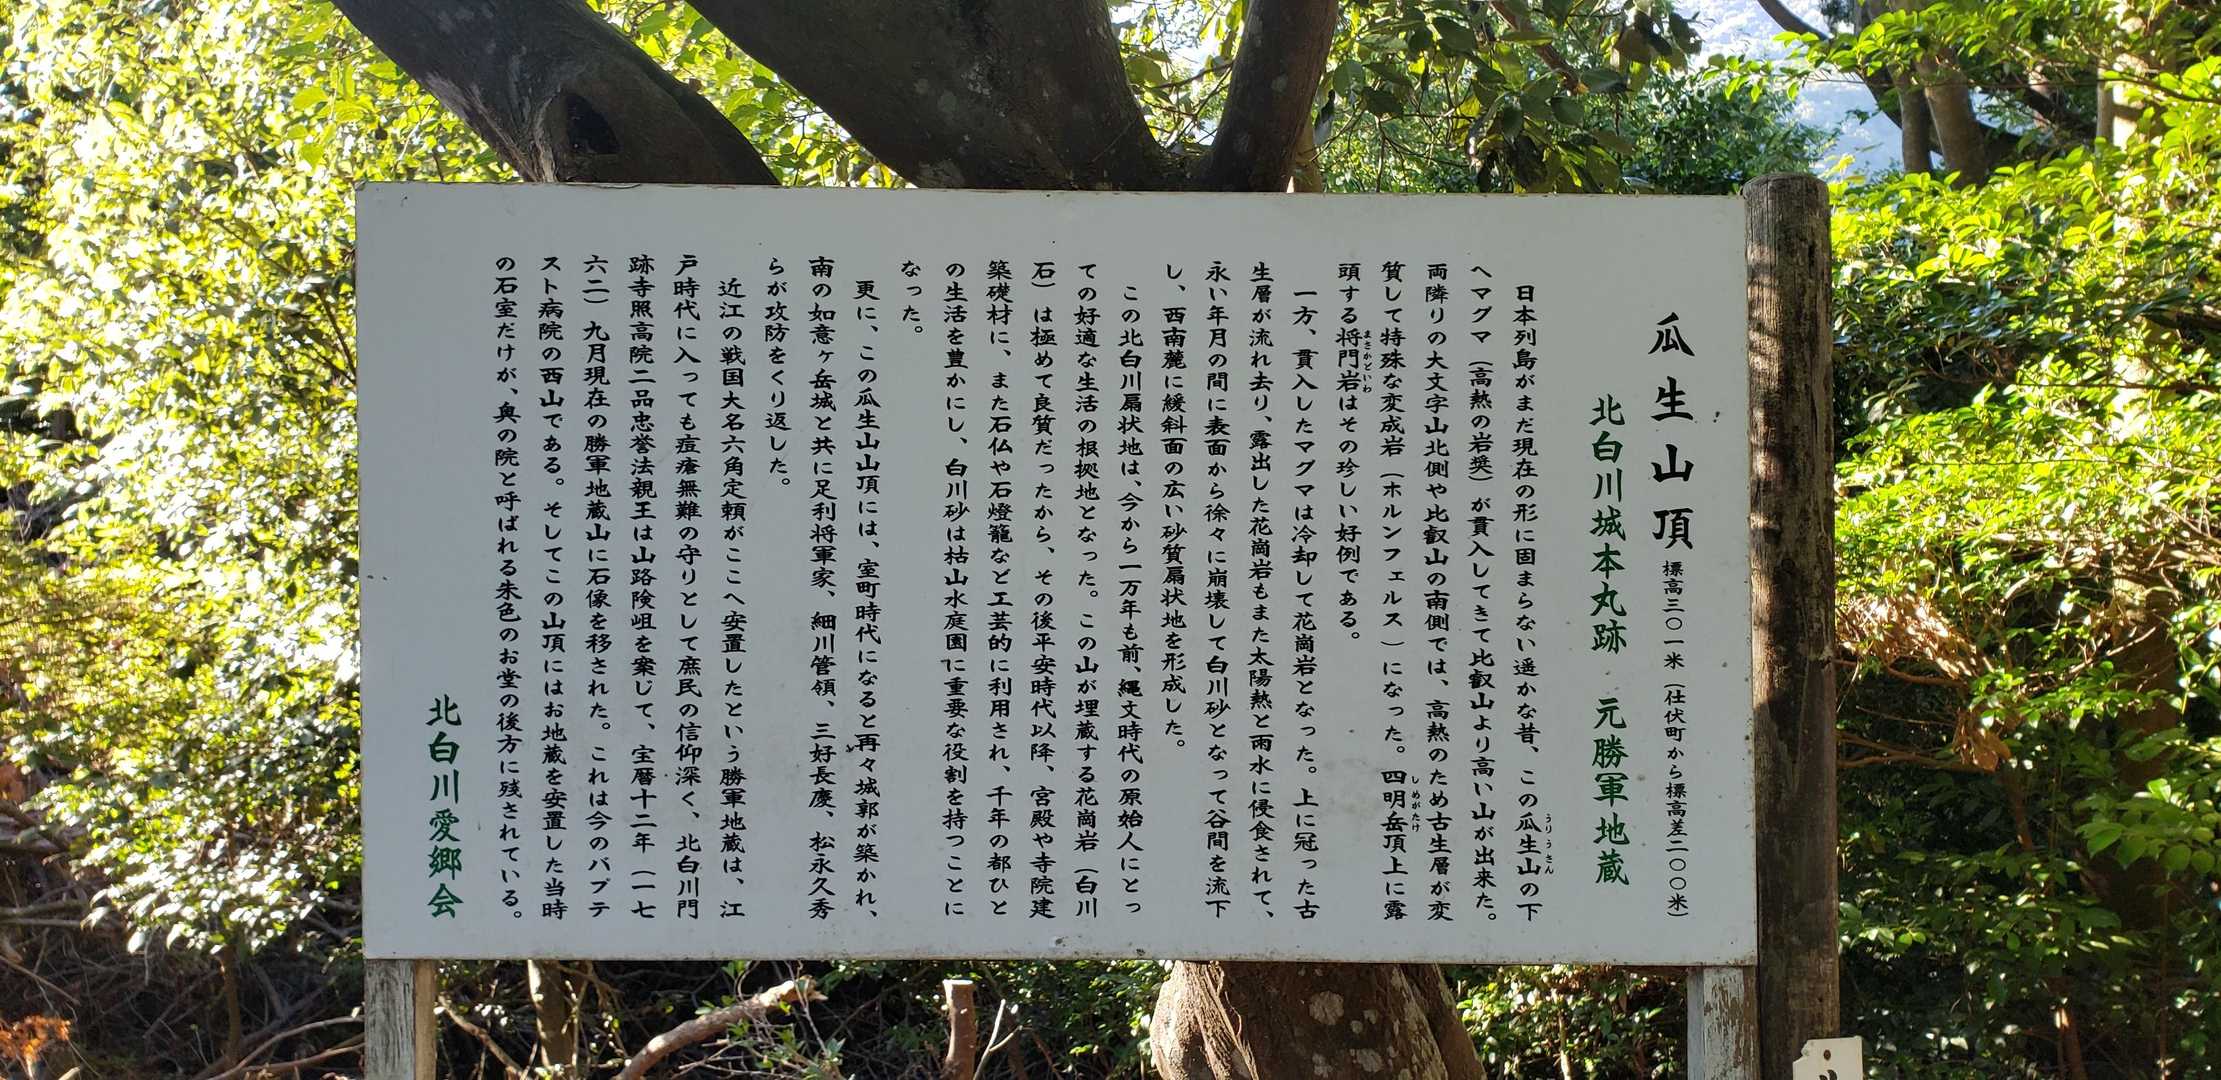 瓜生山頂 標高三〇一米(仕伏町から標高差二〇〇米)
北白川城本丸跡 元勝軍地蔵
日本列島がまだ現在の形に固まらない遥かな昔、この瓜生山の下
うりうさん
へマグマ(高熱の岩奬)が貫入してきて比叡山より高い山が出来た。
両隣りの大文字山北側や比叡山の南側では、高熱のため古生層が変
質して特殊な変成岩(ホルンフェルス)になった。四明岳頂上に露
しめがたけ
頭する将門岩はその珍しい好例である。
まさかどいわ
一方、貫入したマグマは冷却して花崗岩となった。上に冠った古
生層が流れ去り、露出した花崗岩もまた太陽熱と雨水に侵食されて、
永い年月の間に表面から徐々に崩壊して白川砂となって谷間を流下
し、西南麓に緩斜面の広い砂質扇状地を形成した。
この北白川扇状地は、今から一万年も前、縄文時代の原始人にとっ
ての好適な生活の根拠地となった。この山が埋蔵する花崗岩(白川
石)は極めて良質だったから、その後平安時代以降、宮殿や寺院建
築礎材に、また石仏や石燈籠など工芸的に利用され、千年の都ひと
の生活を豊かにし、白川砂は枯山水庭園に重要な役割を持つことに
なった。
更に、この瓜生山山頂には、室町時代になると再々城郭が築かれ、
南の如意ヶ岳城と共に足利将軍家、細川管領、三好長慶、松永久秀
らが攻防をくり返した。
近江の戦国大名六角定頼がここへ安置したという勝軍地蔵は、江
戸時代に入っても痘瘡無難の守りとして庶民の信仰深く、北白川門
跡寺照高院二品忠誉法親王は山路険岨を案じて、宝暦十二年(一七
六二)九月現在の勝軍地蔵山に石像を移された。これは今のバプテ
スト病院の西山である。そしてこの山頂にはお地蔵を安置した当時
の石室だけが、奥の院と呼ばれる朱色のお堂の後方に残されている。
北白川愛郷会